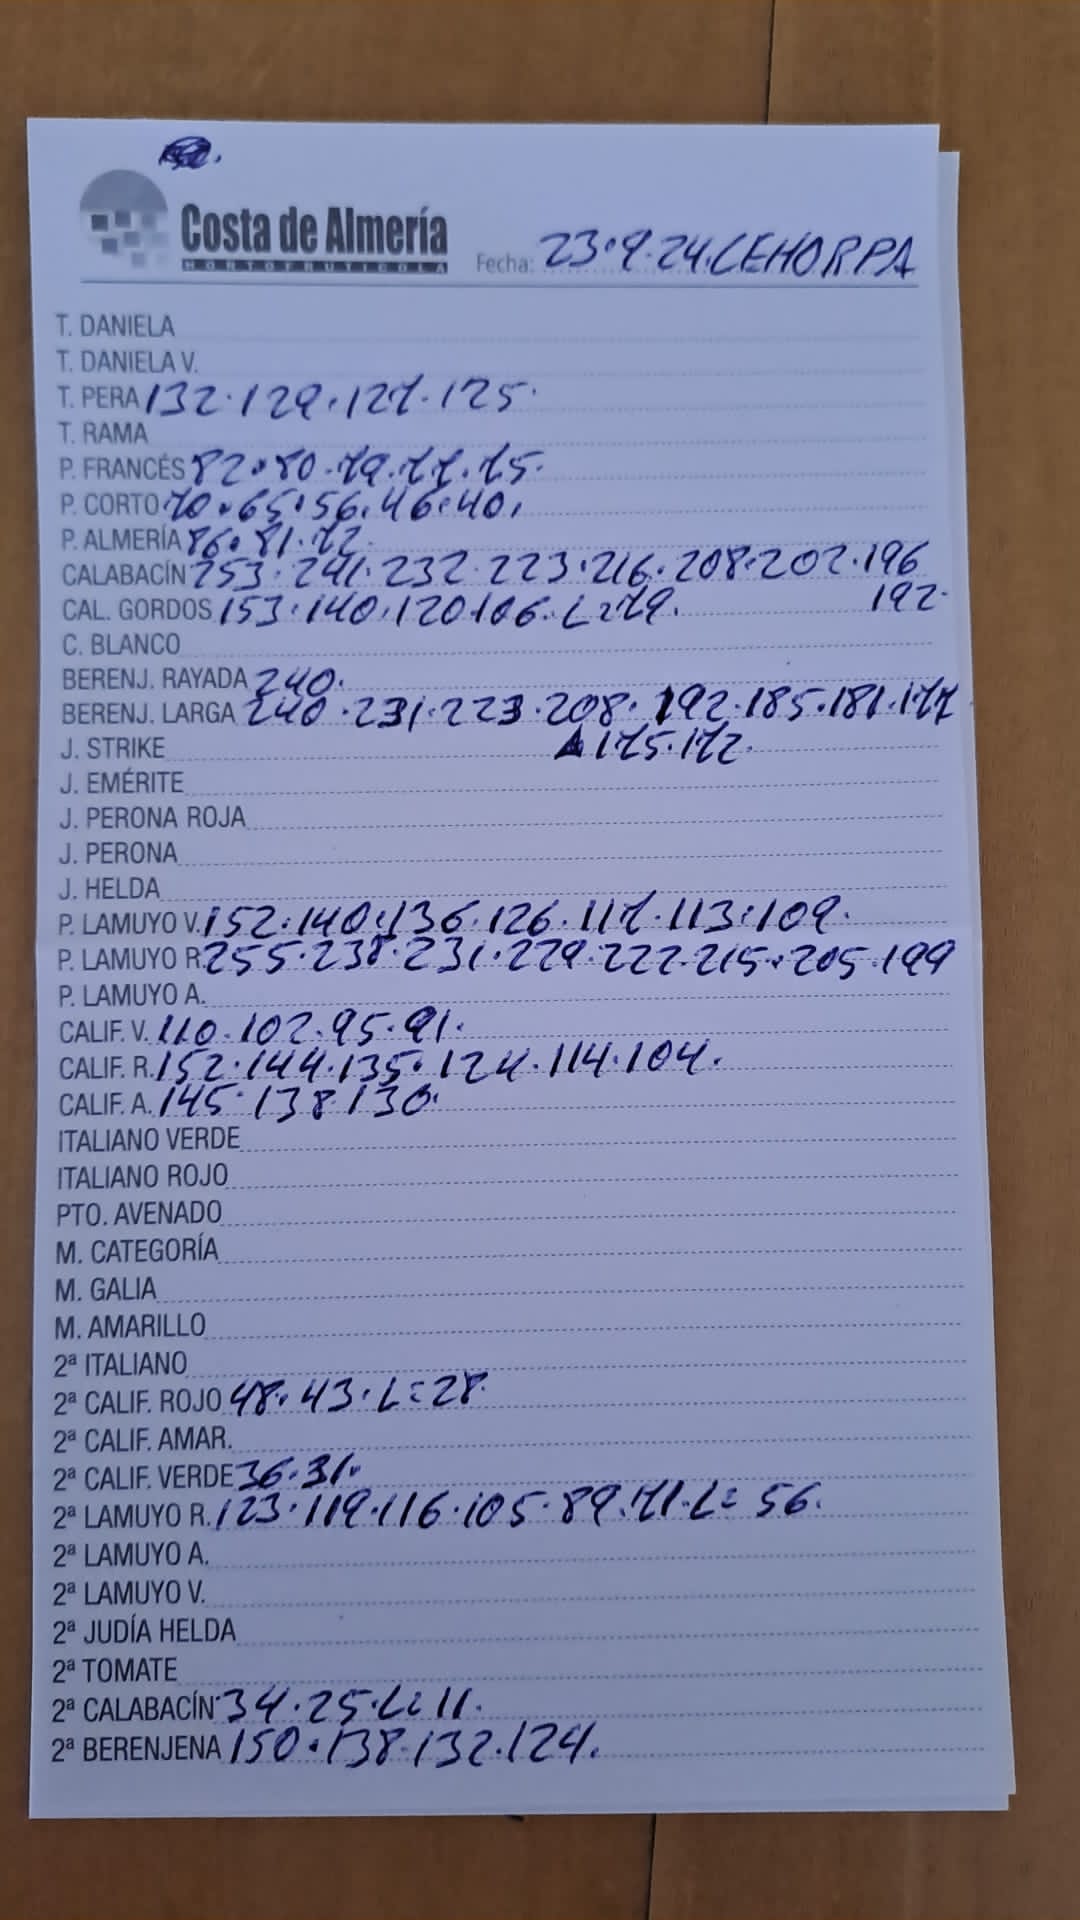 Costa de Almería
HORTOFRUTICOLA
Fecha: 23.9.24. CEHORPA
T. DANIELA
T. DANIELA V.
T. PERA 132.129.127.125.
T. RAMA
P. FRANCÉS 82.80.79.77.75.
P. CORTO 70.65.56.46.40.
P. ALMERÍA 86.81.72.
CALABACÍN 253.241.232.223.216.208.202.196
192.
CAL. GORDOS 153.140.120.106.L=79.
C. BLANCO
BERENJ. RAYADA 240.
BERENJ. LARGA 240.231.223.208.192.185.181.177
175.172.
J. STRIKE
J. EMÉRITE
J. PERONA ROJA
J. PERONA
J. HELDA
P. LAMUYO V. 152.140.136.126.117.113.109.
P. LAMUYO R 255.238.231.229.222.215.205.199
P. LAMUYO A.
CALIF. V. 110.102.95.91.
CALIF. R. 152.144.135.124.114.104.
CALIF. A. 145.138.130.
ITALIANO VERDE
ITALIANO ROJO
PTO. AVENADO
M. CATEGORÍA
M. GALIA
M. AMARILLO
2ª ITALIANO
2ª CALIF. ROJO 48.43.L=28.
2ª CALIF. AMAR.
2ª CALIF. VERDE 36.31.
2ª LAMUYO R. 123.119.116.105.89.71.L=56.
2ª LAMUYO A.
2ª LAMUYO V.
2ª JUDÍA HELDA
2ª TOMATE
2ª CALABACÍN 34.25.L=11.
2ª BERENJENA 150.138.132.124.